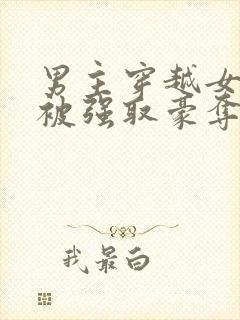 男主穿越女
被强取豪夺
我最白